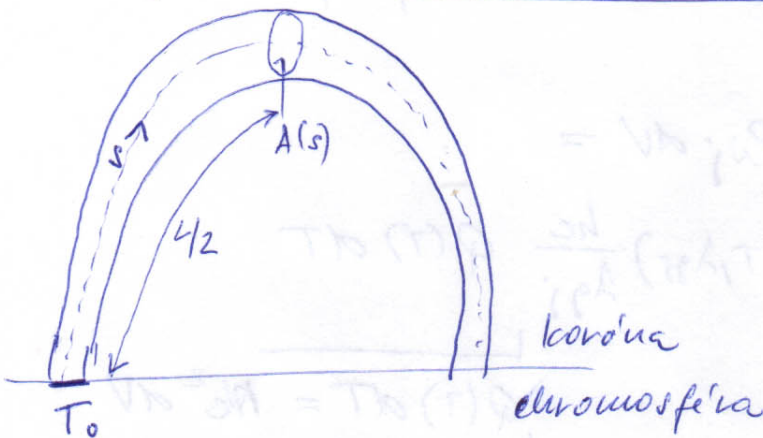 A(s)
s
L/2
koróna
chromosféra
T₀